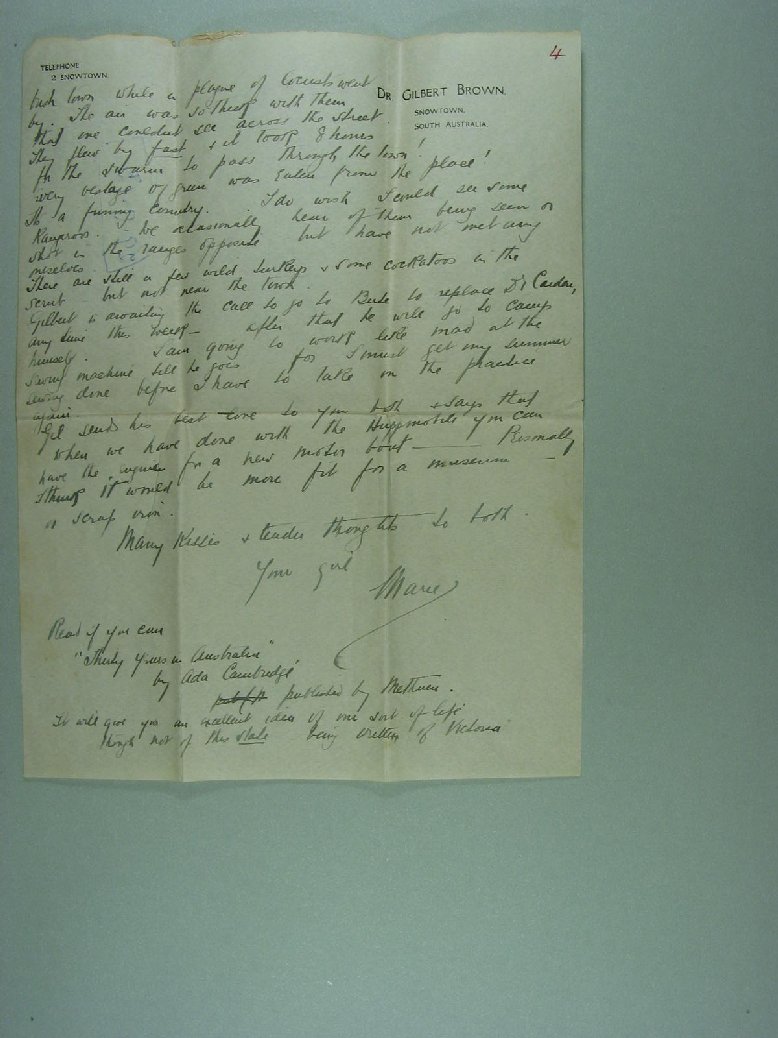 4
TELEPHONE
2 SNOWTOWN.
DR GILBERT BROWN.
SNOWTOWN,
SOUTH AUSTRALIA.
town while a plague of locusts went
by. The air was so thick with them
that one couldn't see across the street.
They flew by fast & it took 8 hours
for the swarm to pass through the town!
every vestage of green was eaten from the place!
Its a funny country. I do wish I could see some
Kangaroos. We occasionally hear of them being seen or
shot in the ranges opposite but have not met any
ourselves.
There are still a few wild turkeys & some cockatoos in the
scrub but not near the town.
Gilbert is awaiting the call to go to to replace Dr
any time this week — after that he will go to camp
himself. I am going to work like mad at the
sewing machine till he goes for I must get my summer
sewing done before I have to take on the practice
again
Gil sends his best love to you both & says that
when we have done with the Huppmobile you can
have the engine for a new motor boat — Personally
I think it would be more fit for a museum —
or scrap iron.
Many Kisses & tender thoughts to both.
Your girl
Marie
Read if you can
"Thirty Years in Australia"
by Ada Cambridge
published by Methuen.
It will give you an excellent idea of our sort of life
though not of this state being written of Victoria